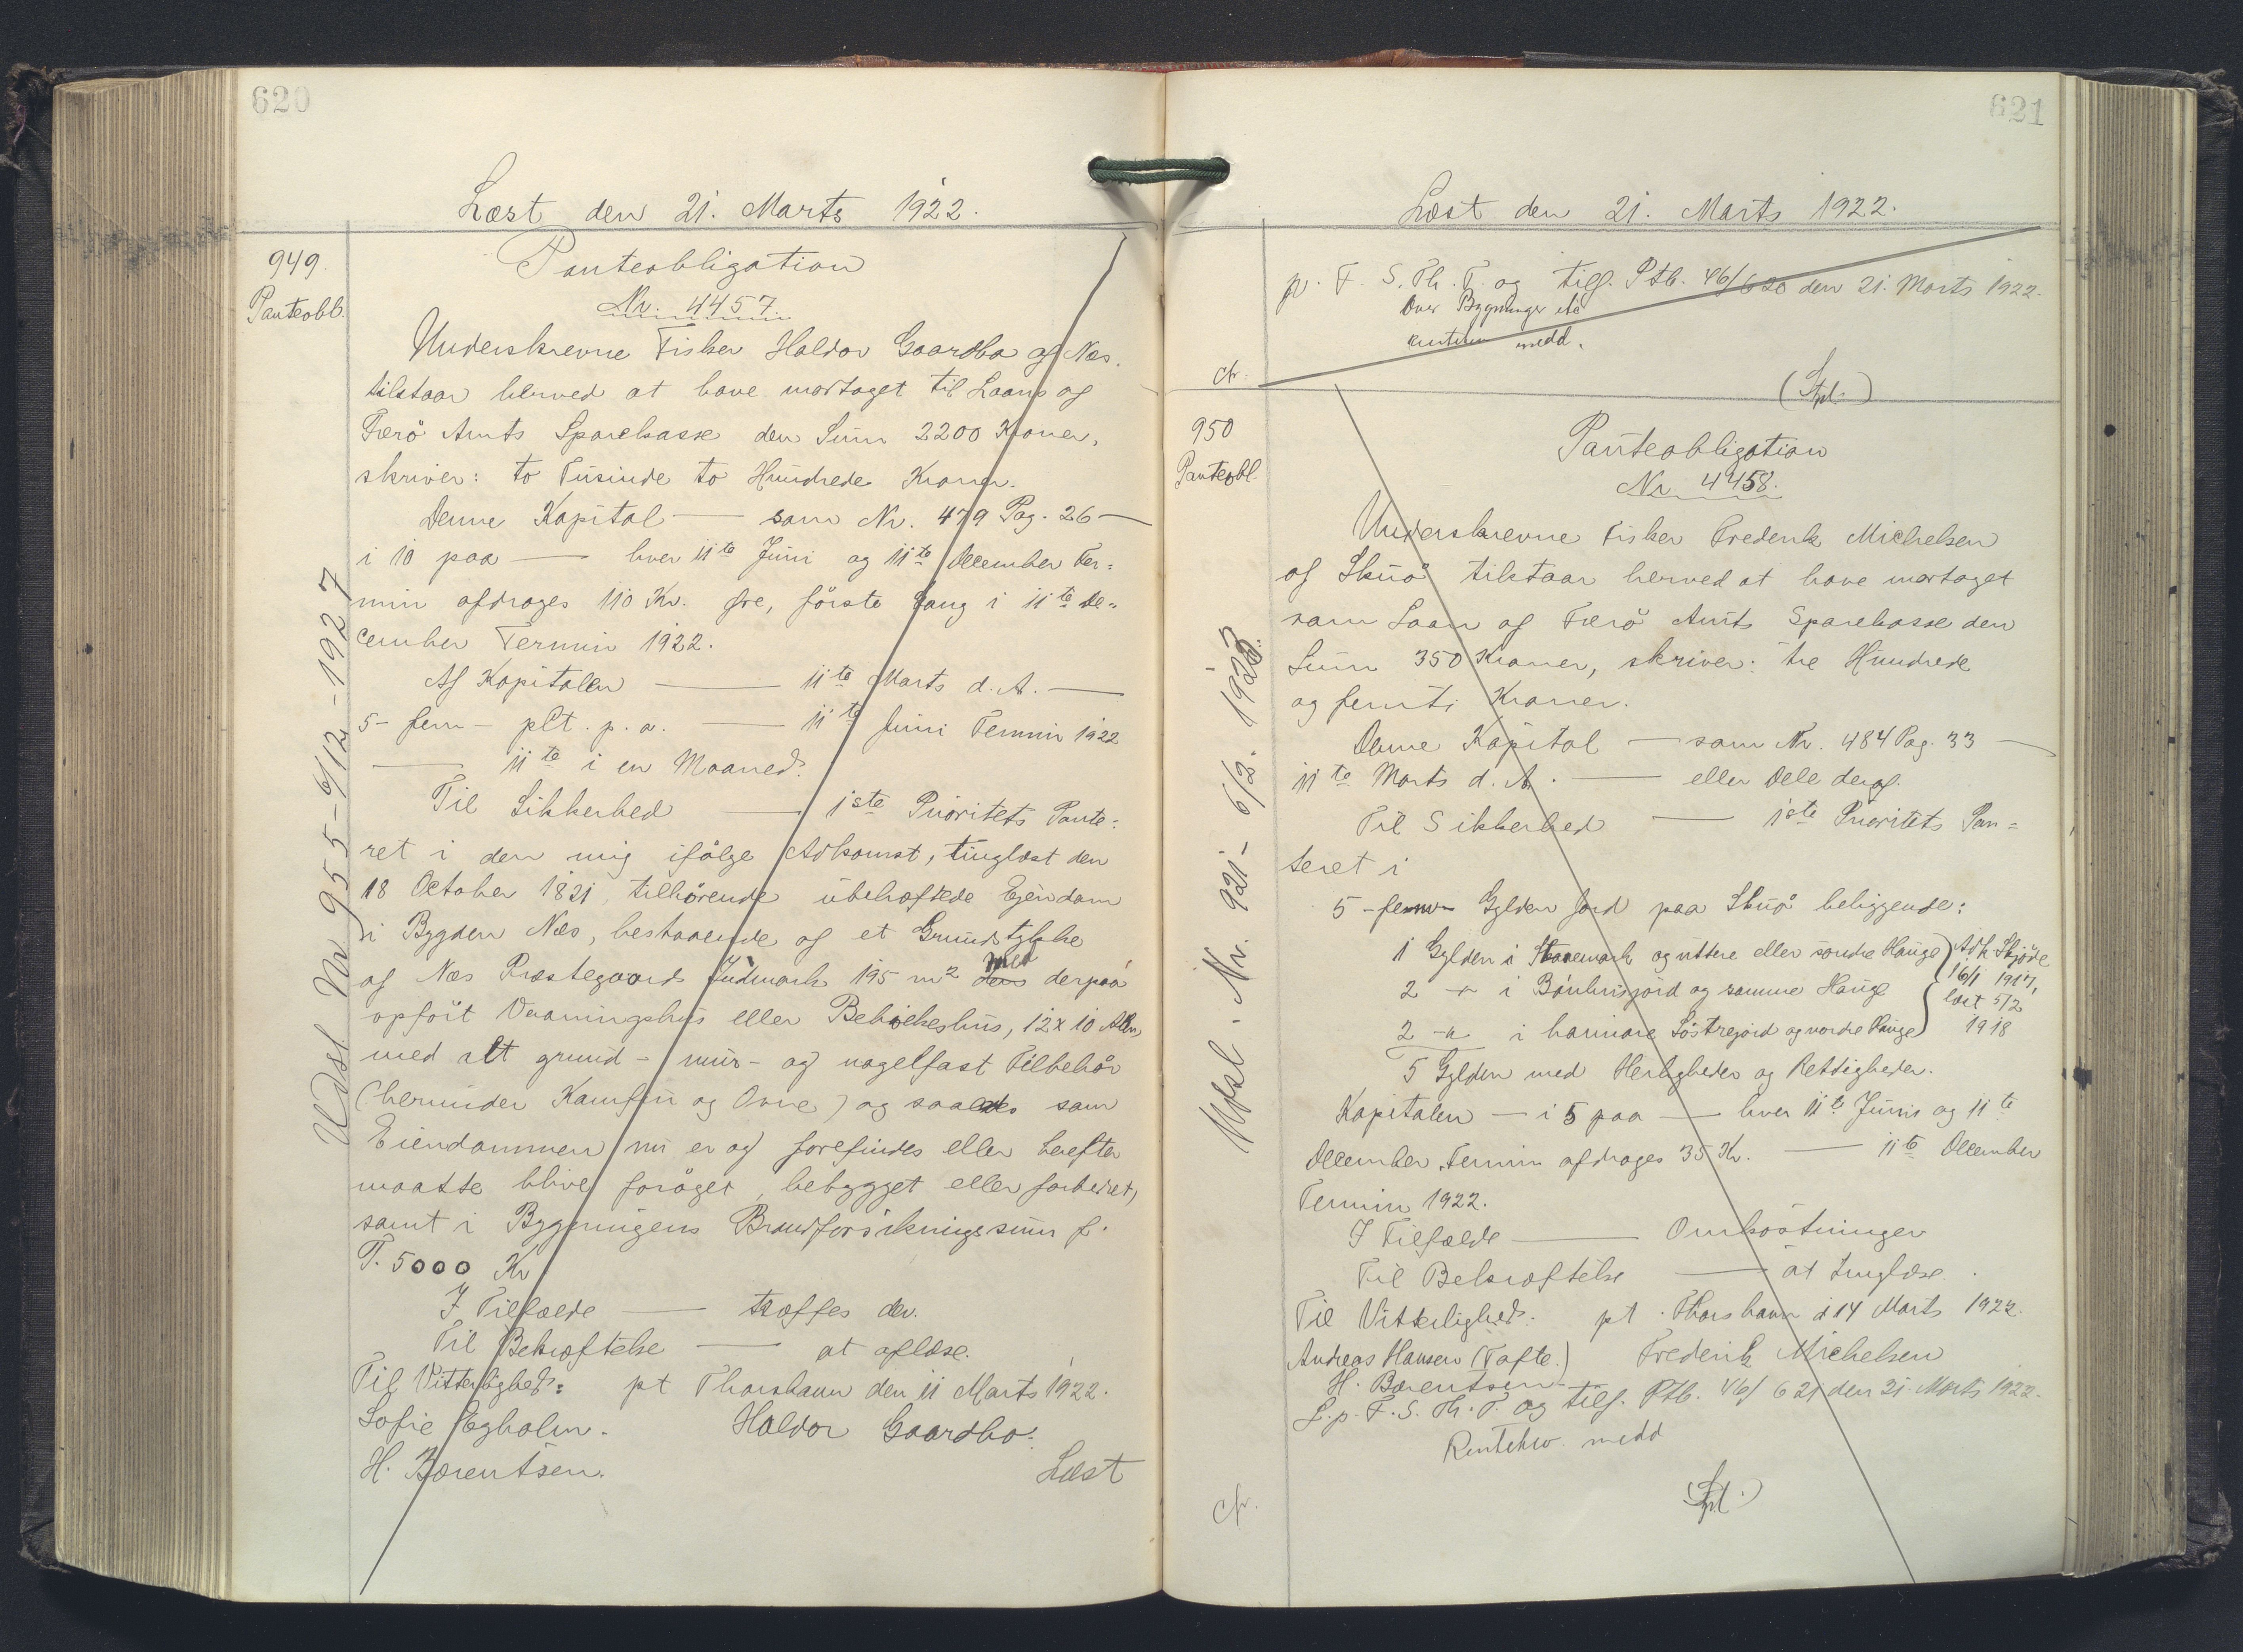 620
Læst den 21. Marts 1922.
949.
Panteobl.
Panteobligation
Nr. 4457.
Underskrevne Fisker Haldor Gaardbo af Næs.
tilstaar herved at have modtaget til Laans af
Færö Amts Sparekasse den Sum 2200 Kroner,
skriver: to Tusinde to Hundrede Kroner.
Denne Kapital — som Nr. 479 Pag. 26 —
i 10 paa — hver 11te Juni og 11te December Ter=
min afdrages 110 Kr. første Gang i 11te De=
cember Termin 1922.
Af Kapitalen — 11te Marts d. A. —
5 - fem - pCt. p. a. — 11te Juni Termin 1922
— 11te i en Maaned.
Til Sikkerhed — 1ste Prioritets Pante=
ret i den mig ifølge Adkomst, tinglæst den
18 October 1821, tilhørende ubehæftede Ejendom
i Bygden Næs, bestaaende af et Grundstykke
af Næs Præstegaards Indmark 195 m2 med derpaa
opført Vaaningshus eller Beboelseshus, 12 x 10 Alen,
med alt grund- mur- og nagelfast Tilbehør
(herunder Kamfur og Ovne) og saaledes som
Eiendommen nu er og forefindes eller herefter
maatte blive forøget, bebygget eller forbedret,
samt i Bygningens Brandforsikringssum f.
T. 5000 Kr
I Tilfælde — træffes der.
Til Bekræftelse — at aflæse.
Til Vitterlighed: pt Thorshavn den 11 Marts 1922.
Sofie Egholm. Haldor Gaardbo.
H. Bærentsen. Læst
Udsl. Nr 955 - 6/12 - 1927
621
Læst den 21. Marts 1922.
p. F. S. Th. T. og tilf. Ptb. 46/620 den 21. Marts 1922.
Over Bygninger etc
medd.
cfr.
950
Panteobl.
Panteobligation
Nr. 4458.
Underskrevne Fisker Frederik Michelsen
af Skuö tilstaar herved at have modtaget
som Laan af Færö Amts Sparekasse den
Sum 350 Kroner, skriver: tre Hundrede
og femti Kroner.
Denne Kapital — som Nr. 484 Pag. 33 —
11te Marts d. A. — eller Dele deraf.
Til Sikkerhed — 1ste Prioritets Pan=
teret i
5 - fem - Gylden Jord paa Skuö beliggende:
1 Gylden i og yttere eller søndre Hauge
2 — i og samme Hauge
2 — i og nordre Hauge
Adk. Skjöde
16/1 1917,
læst 5/2
1918
5 Gylden med Herligheder og Rettigheder.
Kapitalen — i 5 paa — hver 11te Juni og 11te
December Termin afdrages 35 Kr. — 11te December
Termin 1922.
I Tilfælde — Omkostninger
Til Bekræftelse — at tinglæse.
Til Vitterlighed: pt. Thorshavn d 14 Marts 1922.
Andreas Hansen (Tafte.) Frederik Michelsen
H. Bærentsen
L. p. F. S. Th. T. og tilf. Ptb. 46/621 den 21. Marts 1922.
medd
cfr.
Udsl. Nr. 921 - 6/2. 1928.